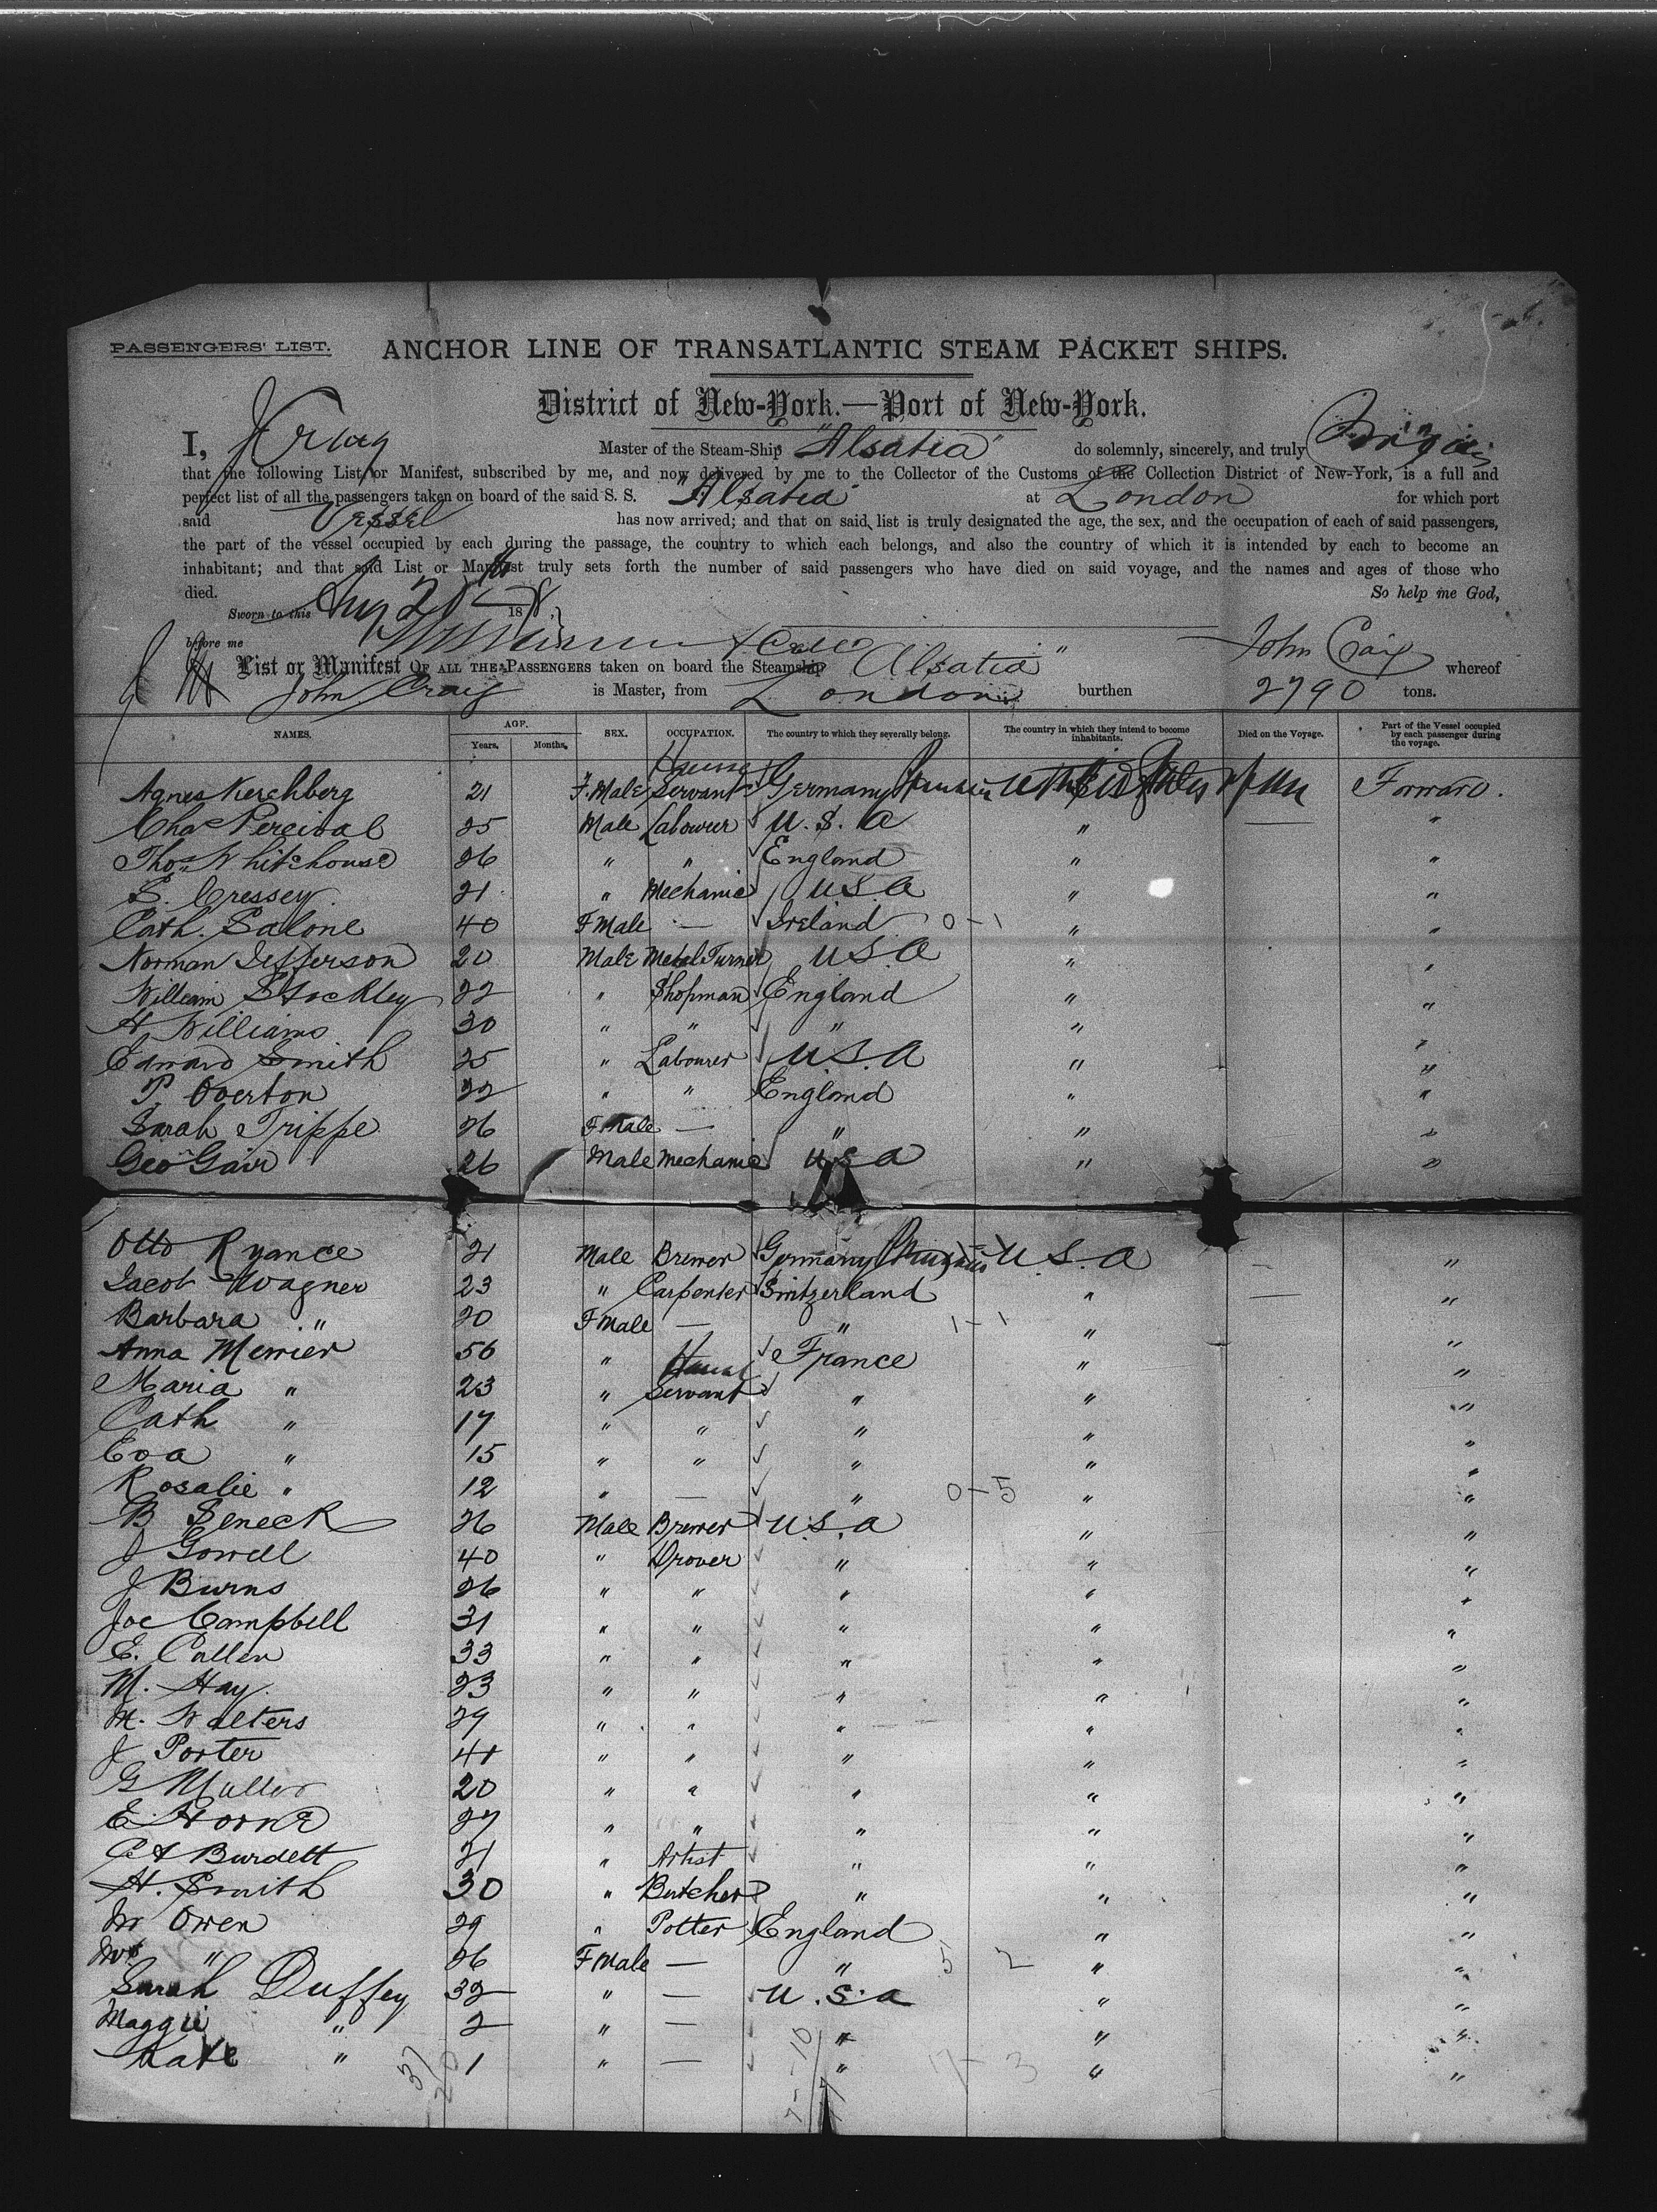 PASSENGERS' LIST.
ANCHOR LINE OF TRANSATLANTIC STEAM PACKET SHIPS.
District of New-York.—Port of New-York.
I, J Craig Master of the Steam-Ship "Alsatia" do solemnly, sincerely, and truly
that the following List or Manifest, subscribed by me, and now delivered by me to the Collector of the Customs of the Collection District of New-York, is a full and
perfect list of all the passengers taken on board of the said S. S. "Alsatia" at London for which port
said Vessel has now arrived; and that on said list is truly designated the age, the sex, and the occupation of each of said passengers,
the part of the vessel occupied by each during the passage, the country to which each belongs, and also the country of which it is intended by each to become an
inhabitant; and that said List or Manifest truly sets forth the number of said passengers who have died on said voyage, and the names and ages of those who
died. So help me God,
Sworn to this Aug 20th 1878.
before me
List or Manifest OF ALL THE PASSENGERS taken on board the Steamship Alsatia " John Craig whereof
John Craig is Master, from London burthen 2790 tons.
NAMES. AGE. Years. Months. SEX. OCCUPATION. The country to which they severally belong. The country in which they intend to become inhabitants. Died on the Voyage. Part of the Vessel occupied by each passenger during the voyage.
Agnes Kerchberg 21 F.Male House Servant Germany United States Forward.
Chas Percival 25 Male Labourer U.S.A " — "
Thos Whitehouse 26 " " England " "
E. Cressey 21 " Mechanic USA " "
Cath. Salone 40 F Male — Ireland 0-1 " "
Norman Jefferson 20 Male Metal Turner USA " "
William Stockley 22 " Shopman England " "
H Williams 30 " " " " "
Edward Smith 25 " Labourer USA " "
P. Overton 22 " " England " "
Sarah Trippe 26 F Male — " " "
Geo Gair 26 Male Mechanic USA " "
Otto Ryance 21 Male Brewer Germany U.S.A — "
Jacob Wagner 23 " Carpenter Switzerland " — "
Barbara " 20 F Male — " 1-1 " "
Anna Merrier 56 " France " "
Maria " 23 " House Servant " " "
Cath " 17 " " " " "
Eva " 15 " " " " "
Rosalie " 12 " — " 0-5 " "
B Seneck 26 Male Brewer U.S.A " "
J Gowell 40 " Drover " " "
J Burns 26 " " " " "
Joe Campbell 31 " " " " "
E. Callen 33 " " " " "
M. Hay 23 " " " " "
M. Walters 29 " " " " "
J Porter 41 " " " " "
G Muller 20 " " " " "
E. Horne 27 " " " " "
C A Burdett 21 " Artist " " "
H. Smith 30 " Butcher " " "
Mr Owen 29 " Potter England " "
Mrs " 26 F Male — " 5 2 " "
Sarah Duffey 32 " — U.S.A " "
Maggie " 2 " — " " "
Kate " 1 " — " 7-3 " "